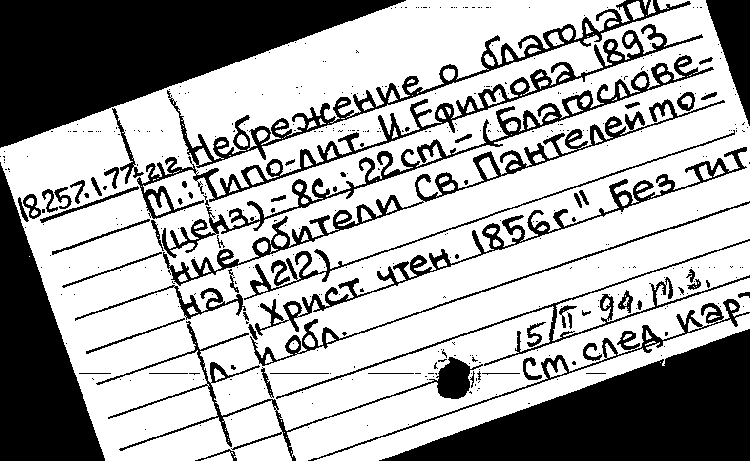 Небрежение о благодати.
18.257.1.77-212 М.: Типо-лит. И. Ефитова, 1893
(ценз.).- 8с.; 22 ст.- (Благослове-
ние обители Св. Пантелеймо-
на; №212).
"Христ. чтен. 1856г.". Без тит.
л. и обл.
15/II-94. т.з.
Ст. след. карт